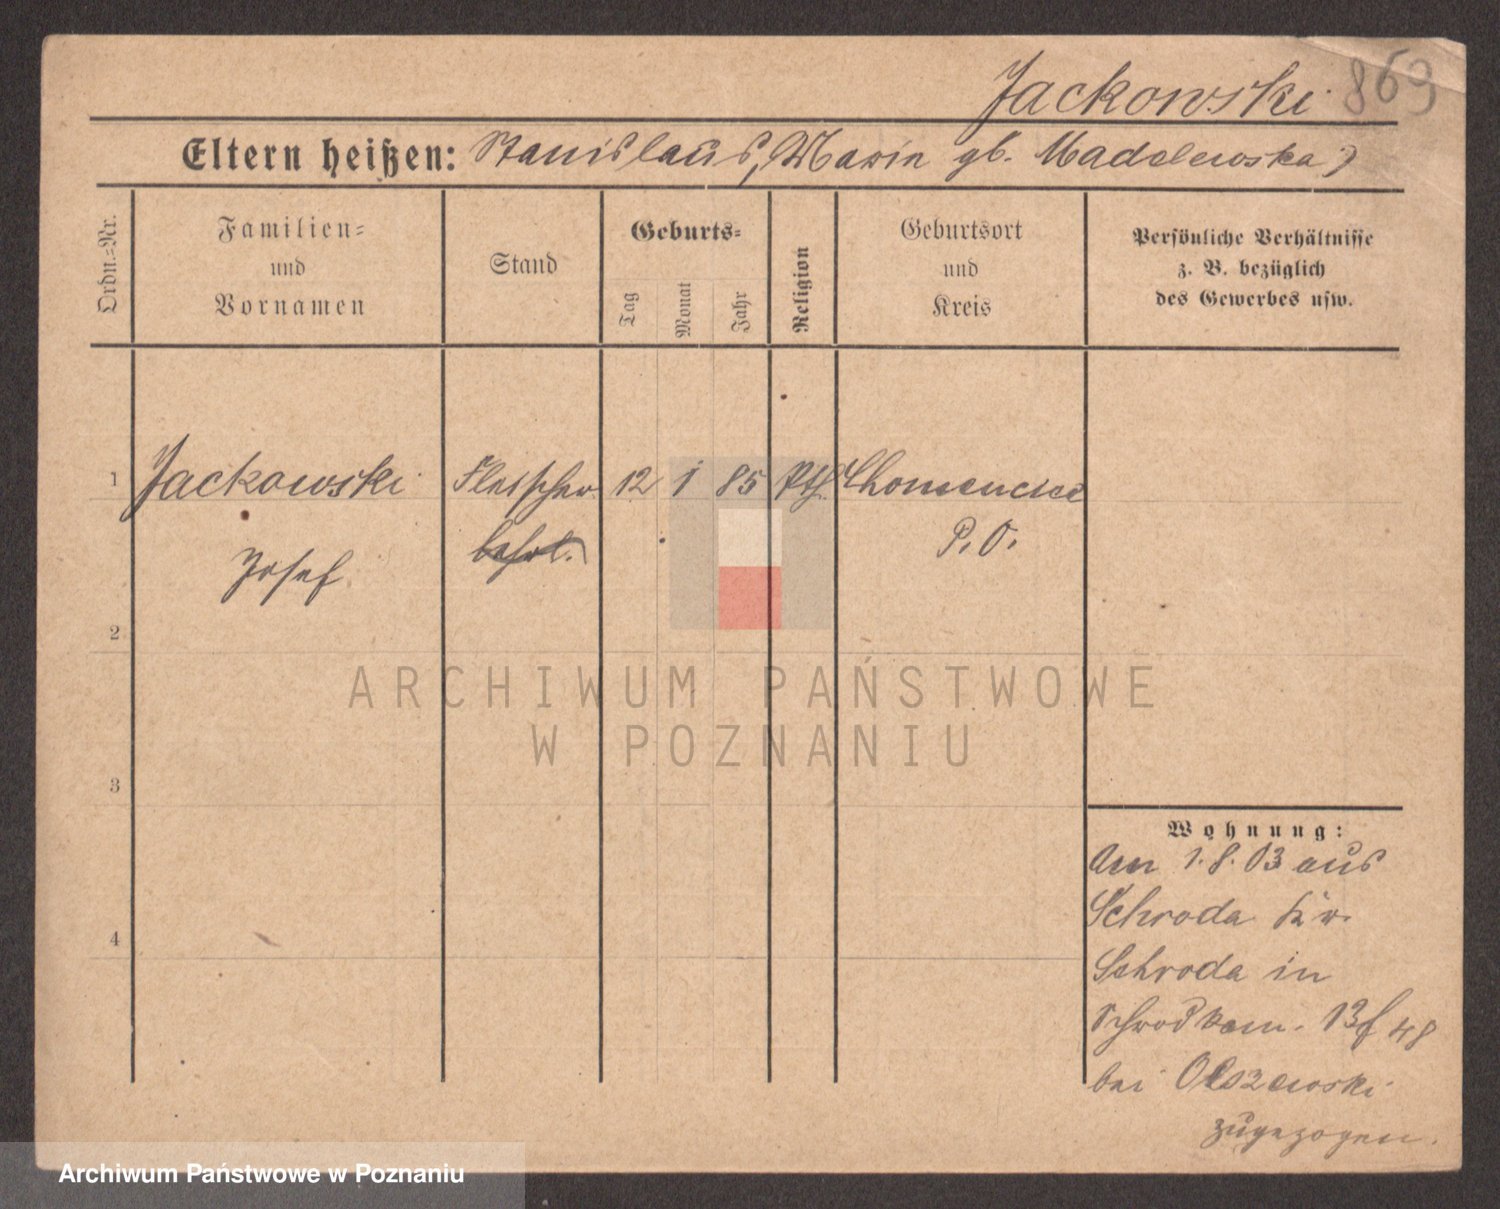 Jackowski 869
Eltern heißen: Stanislaus, Maria gb. Madalewska)
Ordn.=Nr.
Familien=
und
Vornamen
Stand
Geburts=
Tag
Monat
Jahr
Religion
Geburtsort
und
Kreis
Persönliche Verhältnisse
z. B. bezüglich
des Gewerbes usw.
1 Jackowski Fleischer 12 1 85 kth
Josef
P. O.
2
3
4
ARCHIWUM PAŃSTWOWE
W POZNANIU
Wohnung:
Am 1.8.03 aus
Schroda Kr.
Schroda in
48
bei Olszewski
zugezogen.
Archiwum Państwowe w Poznaniu